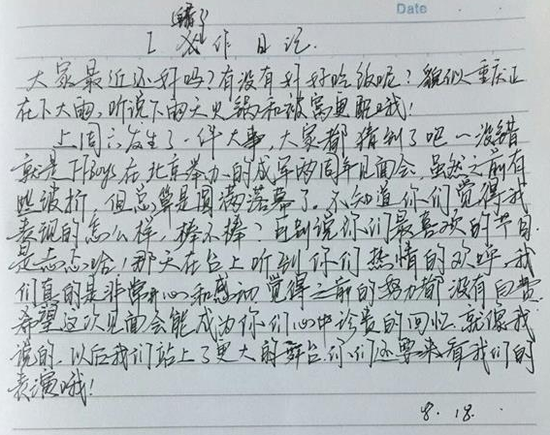 Date
(错了)
工作日记
大家最近还好吗?有没有好好吃饭呢?貌似重庆正
在下大雨,听说下雨天火锅和被窝更配哦!
上周六发生了一件大事,大家都猜到了吧—没错
就是TFboys在北京举办的成军两周年见面会。虽然之前有
些波折,但总算是圆满落幕了。不知道你们觉得我
表现的怎么样,棒不棒?可别说你们最喜欢的节目
是忐忑哈!那天在台上听到你们热情的欢呼,我
们真的是非常开心和感动,觉得之前的努力都没有白费
希望这次见面会能成为你们心中珍贵的回忆。就像我
说的,以后我们站上了更大的舞台,你们还要来看我们的
表演哦!
8.18.